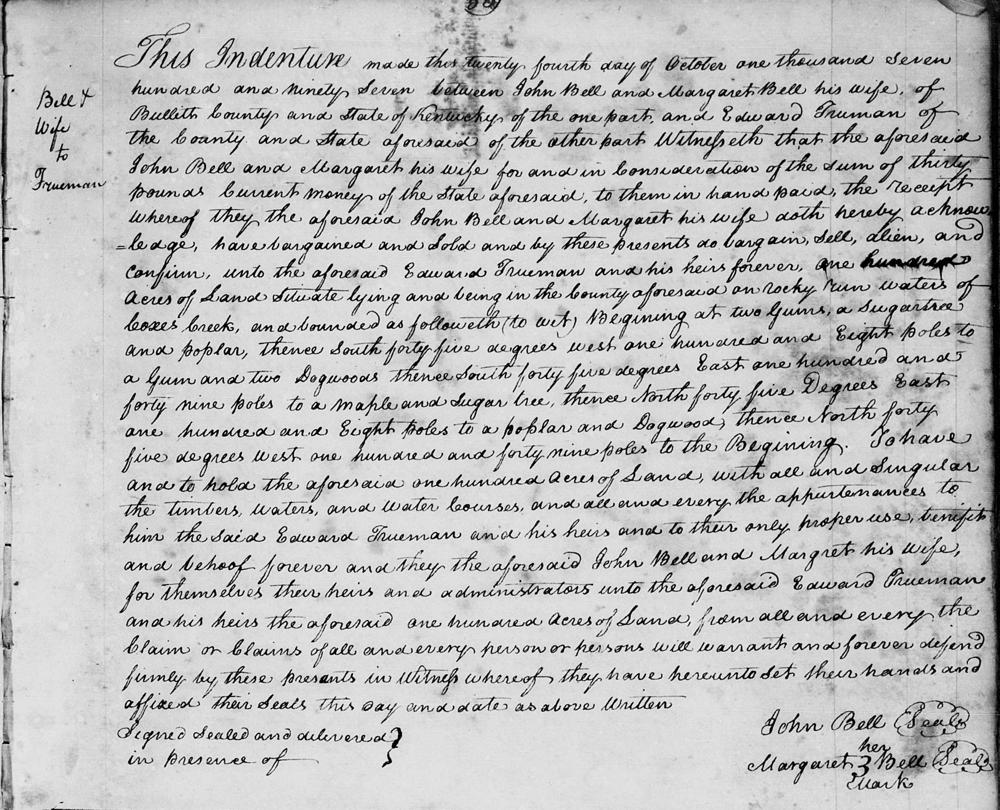 Bell &
Wife
to
Trueman
This Indenture made this twenty fourth day of October one thousand Seven
hundred and ninety Seven between John Bell and Margaret Bell his wife, of
Bullitt County and State of Kentucky of the one part, and Edward Truman of
the County and State aforesaid of the other part Witnesseth that the aforesaid
John Bell and Margaret his wife for and in Consideration of the Sum of thirty
pounds Current money of the State aforesaid, to them in hand paid, the receipt
whereof they the aforesaid John Bell and Margaret his wife doth hereby acknow-
=ledge, have bargained and Sold and by these presents do bargain, Sell, alien, and
Confirm, unto the aforesaid Edward Trueman and his heirs forever, one hundred
Acres of Land Situate lying and being in the County aforesaid on rocky run waters of
Coxes Creek, and bounded as followeth (to wit) Begining at two Gums, a Sugartree
and poplar, thence South forty five degrees west one hundred and Eight poles to
a Gum and two Dogwoods thence South forty five degrees East one hundred and
forty nine poles to a maple and Sugar tree, thence North forty five Degrees East
one hundred and Eight poles to a poplar and Dogwood, thence North forty
five degrees west one hundred and forty nine poles to the Begining. To have
and to hold the aforesaid one hundred Acres of Land, with all and Singular
the timbers, waters, and water Courses, and all and every the appurtenances to
him the Said Edward Trueman and his heirs and to their only proper use, benefit
and behoof forever and they the aforesaid John Bell and Margret his wife,
for themselves their heirs and administrators unto the aforesaid Edward Trueman
and his heirs the aforesaid one hundred Acres of Land, from all and every the
Claim or Claims of all and every person or persons will warrant and forever defend
firmly by these presents in Witness whereof they have hereunto Set their hands and
affixed their Seals this Day and date as above Written
Signed Sealed and delivered }
in presence of
John Bell (Seal)
her
Margaret 3 Bell (Seal)
Mark